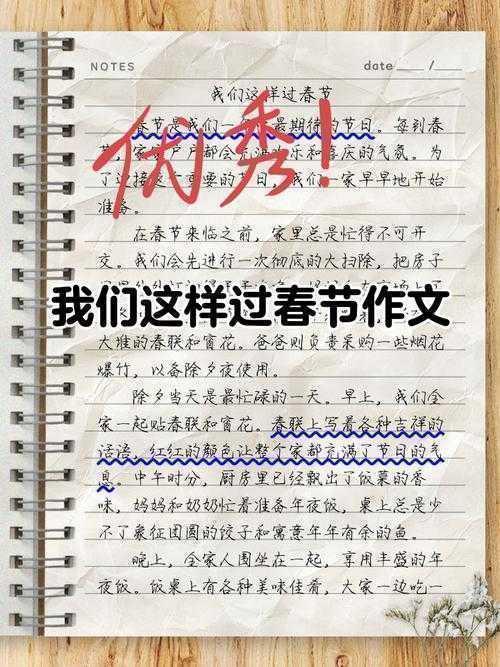 NOTES
date___/___
我们这样过春节
优秀!
春节是我们一最期待的节日。每到春
节,家户户都会充满欢乐和喜庆的气氛。为
了迎接这个重要的节日,我们一家早早地开始
准备。
在春节来临之前,家里总是忙得不可开
交。我们会先进行一次彻底的大扫除,把房子
我们这样过春节作文
大堆的春联和窗花。爸爸则负责采购一些烟花
爆竹,以备除夕夜使用。
除夕当天是最忙碌的一天。早上,我们全
家一起贴春联和窗花。春联上写着各种吉祥的
话语,红红的颜色让整个家都充满了节日的气
息。中午时分,厨房里已经飘出了饭菜的香
味,妈妈和奶奶忙着准备年夜饭,桌上总是少
不了象征团圆的饺子和寓意年年有余的鱼。
晚上,全家人围坐在一起,享用丰盛的年
夜饭。饭桌上有各种美味佳肴,大家一边吃一